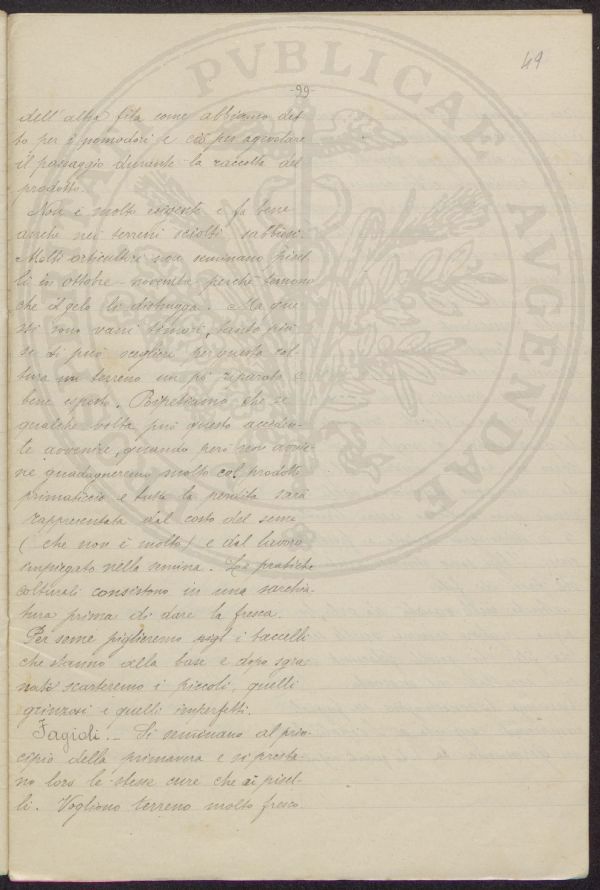 49
-29-
PVBLICAE AVGENDAE
dell'altra fila come abbiamo det
to per i pomodori e ciò per agevolare
il passaggio durante la raccolta del
prodotto.
Non è molto esigente e fa bene
anche nei terreni sciolti sabbiosi.
Molti orticultori non seminano pisel-
li in ottobre-novembre perchè temono
che il gelo li distrugga. Ma que
sti sono vani timori, tanto più
se si può scegliere per questa col-
tura un terreno un pò riparato e
bene esposto. Ripetiamo che se
qualche volta può questo acciden-
te avvenire, quando però non avvie-
ne guadagneremo molto col prodotto
primaticcio e tutta la perdita sarà
rappresentata dal costo del seme
(che non è molto) e dal lavoro
impiegato nella semina. Le pratiche
colturali consistono in una sarchia-
tura prima di dare la frasca.
Per seme piglieremo i baccelli
che stanno alla base e dopo sgra
nati scarteremo i piccoli, quelli
grinzosi e quelli imperfetti.
Fagioli.- Si seminano al prin-
cipio della primavera e si presta
no loro le stesse cure che ai pisel-
li. Vogliono terreno molto fresco